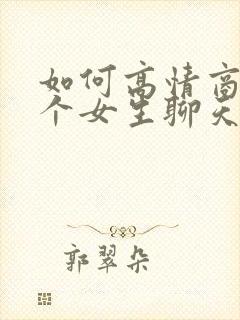 如何高情商
个女生聊天
郭翠朵